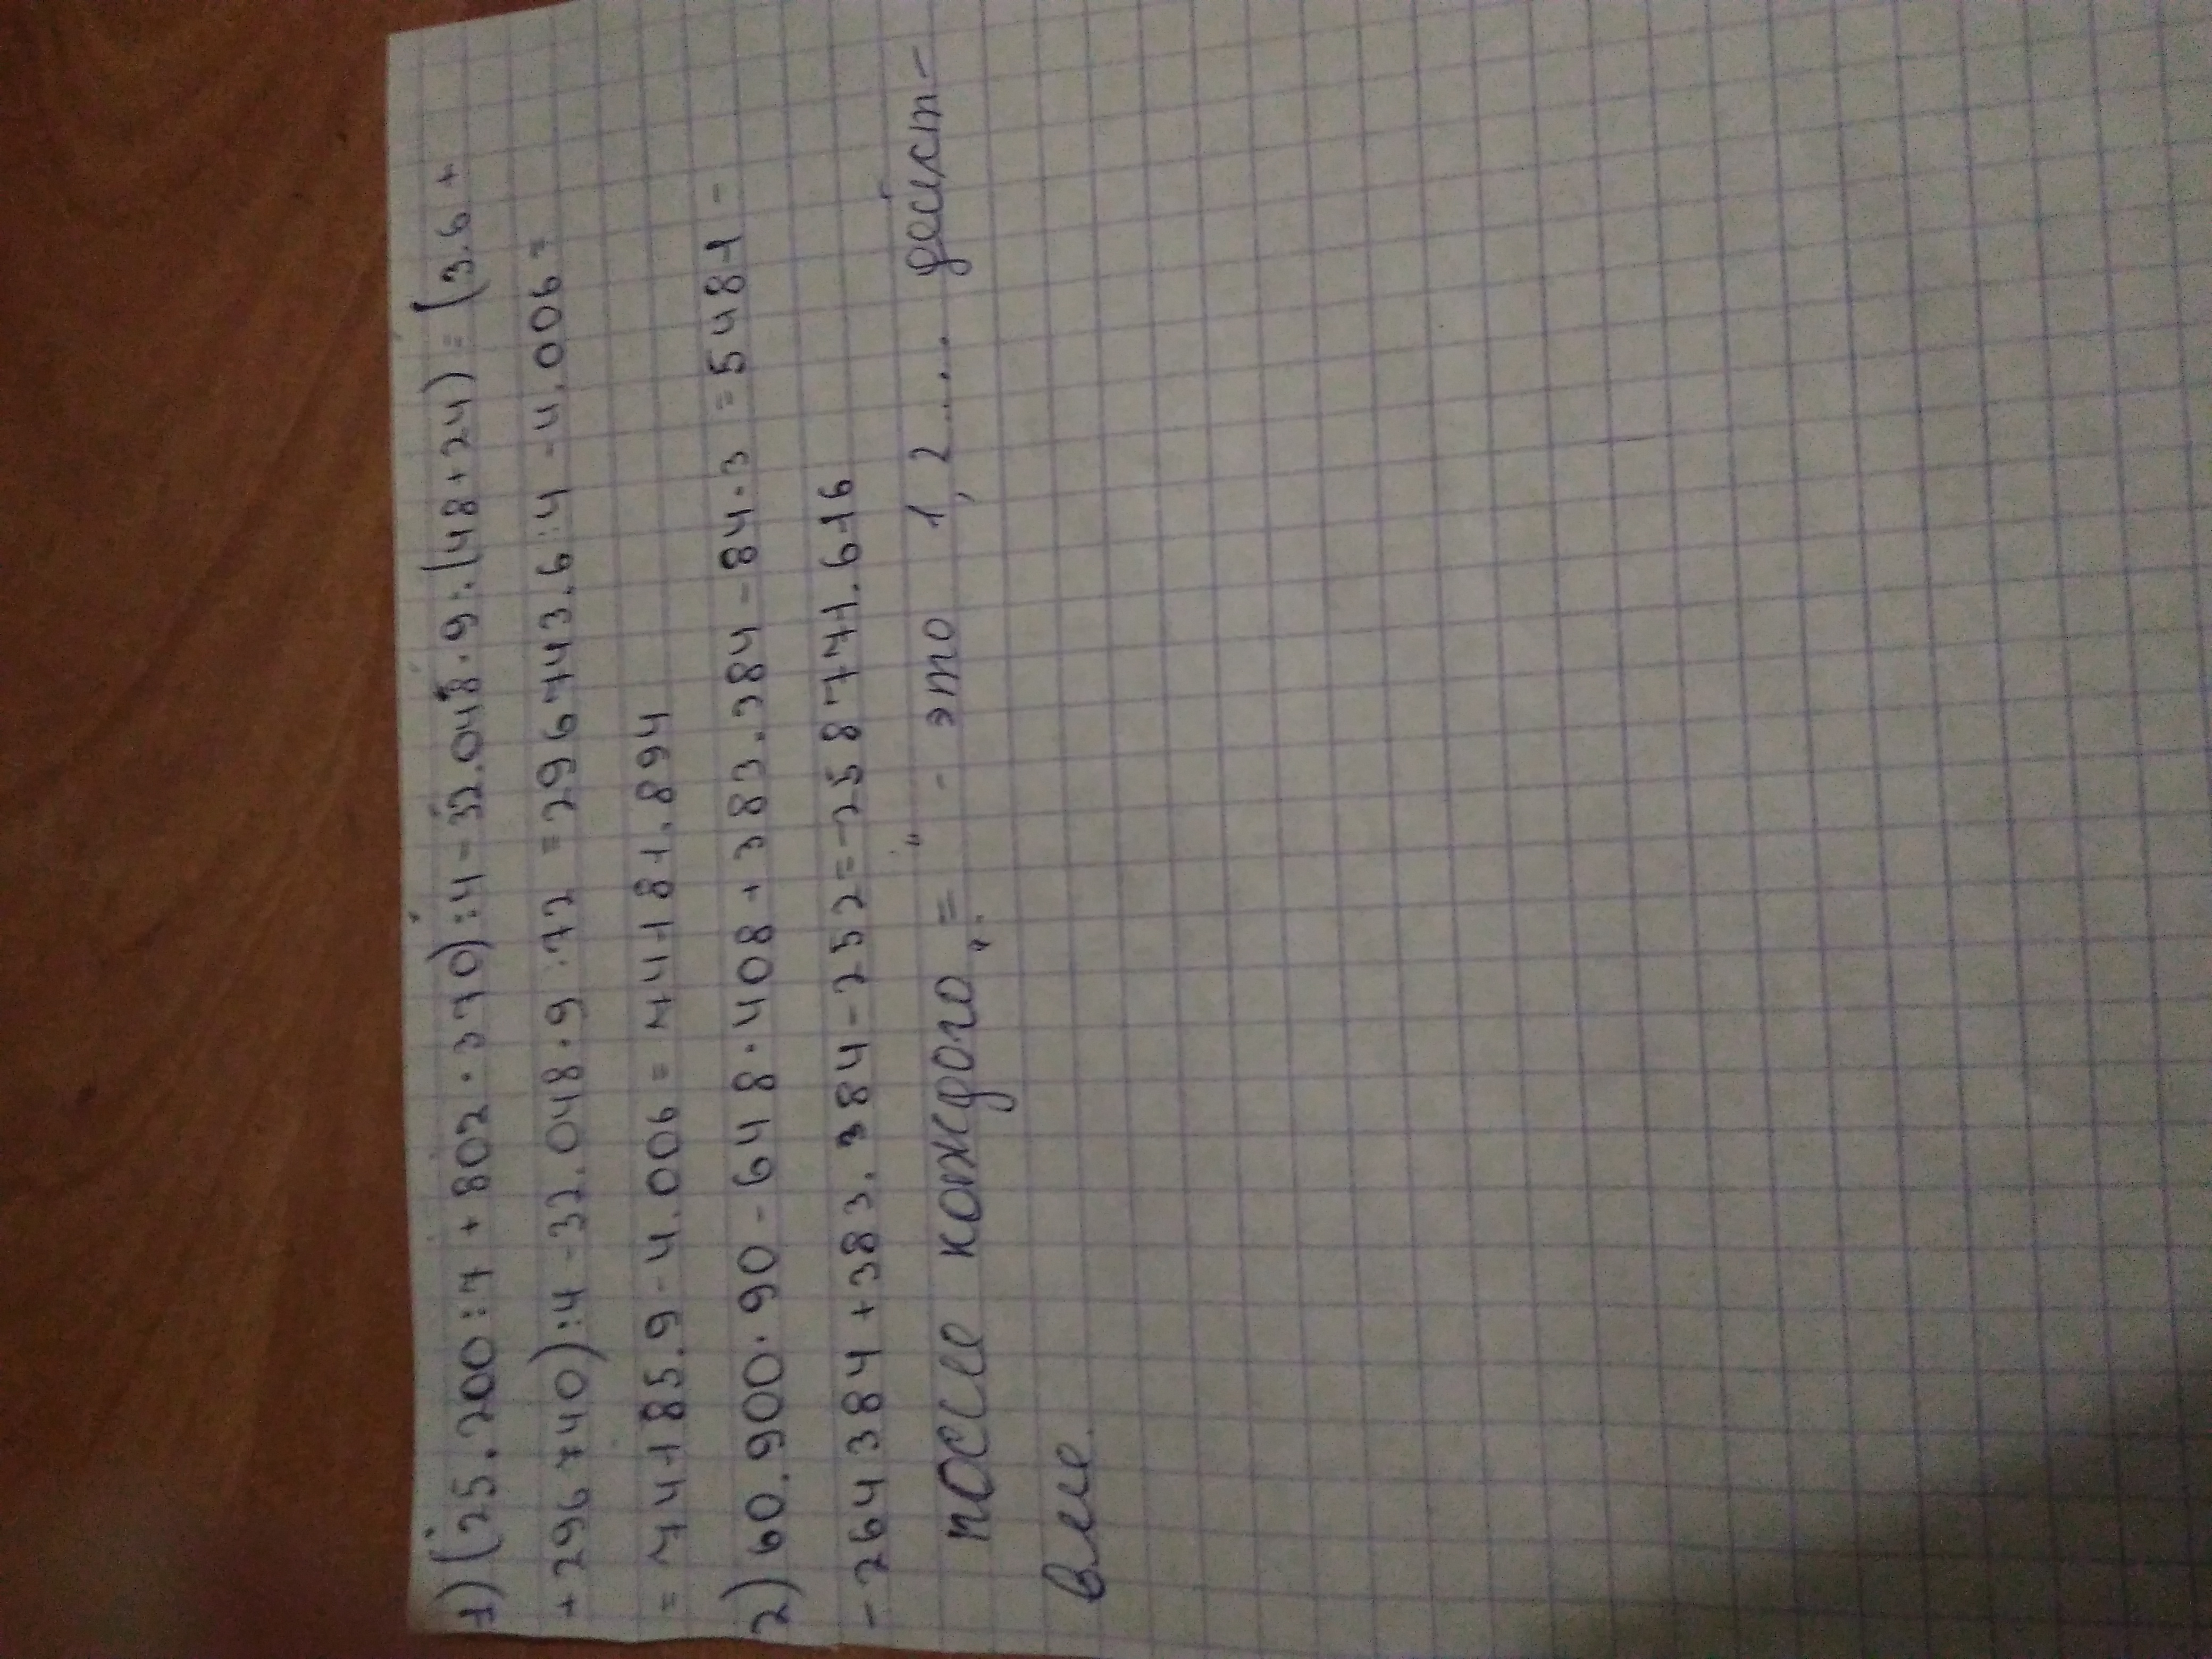 1) (25.200:7+802·370):4-32.048·9:(48+24)=(3.6+
+296740):4-32.048·9:72=296743.6:4-4.006=
=74185.9-4.006=74181.894
2) 60.900·90-648·408+383.384-84·3=5481-
-264384+383.384-252=-258771.616
после каждого „=" - это 1, 2.... дейст-
вие.